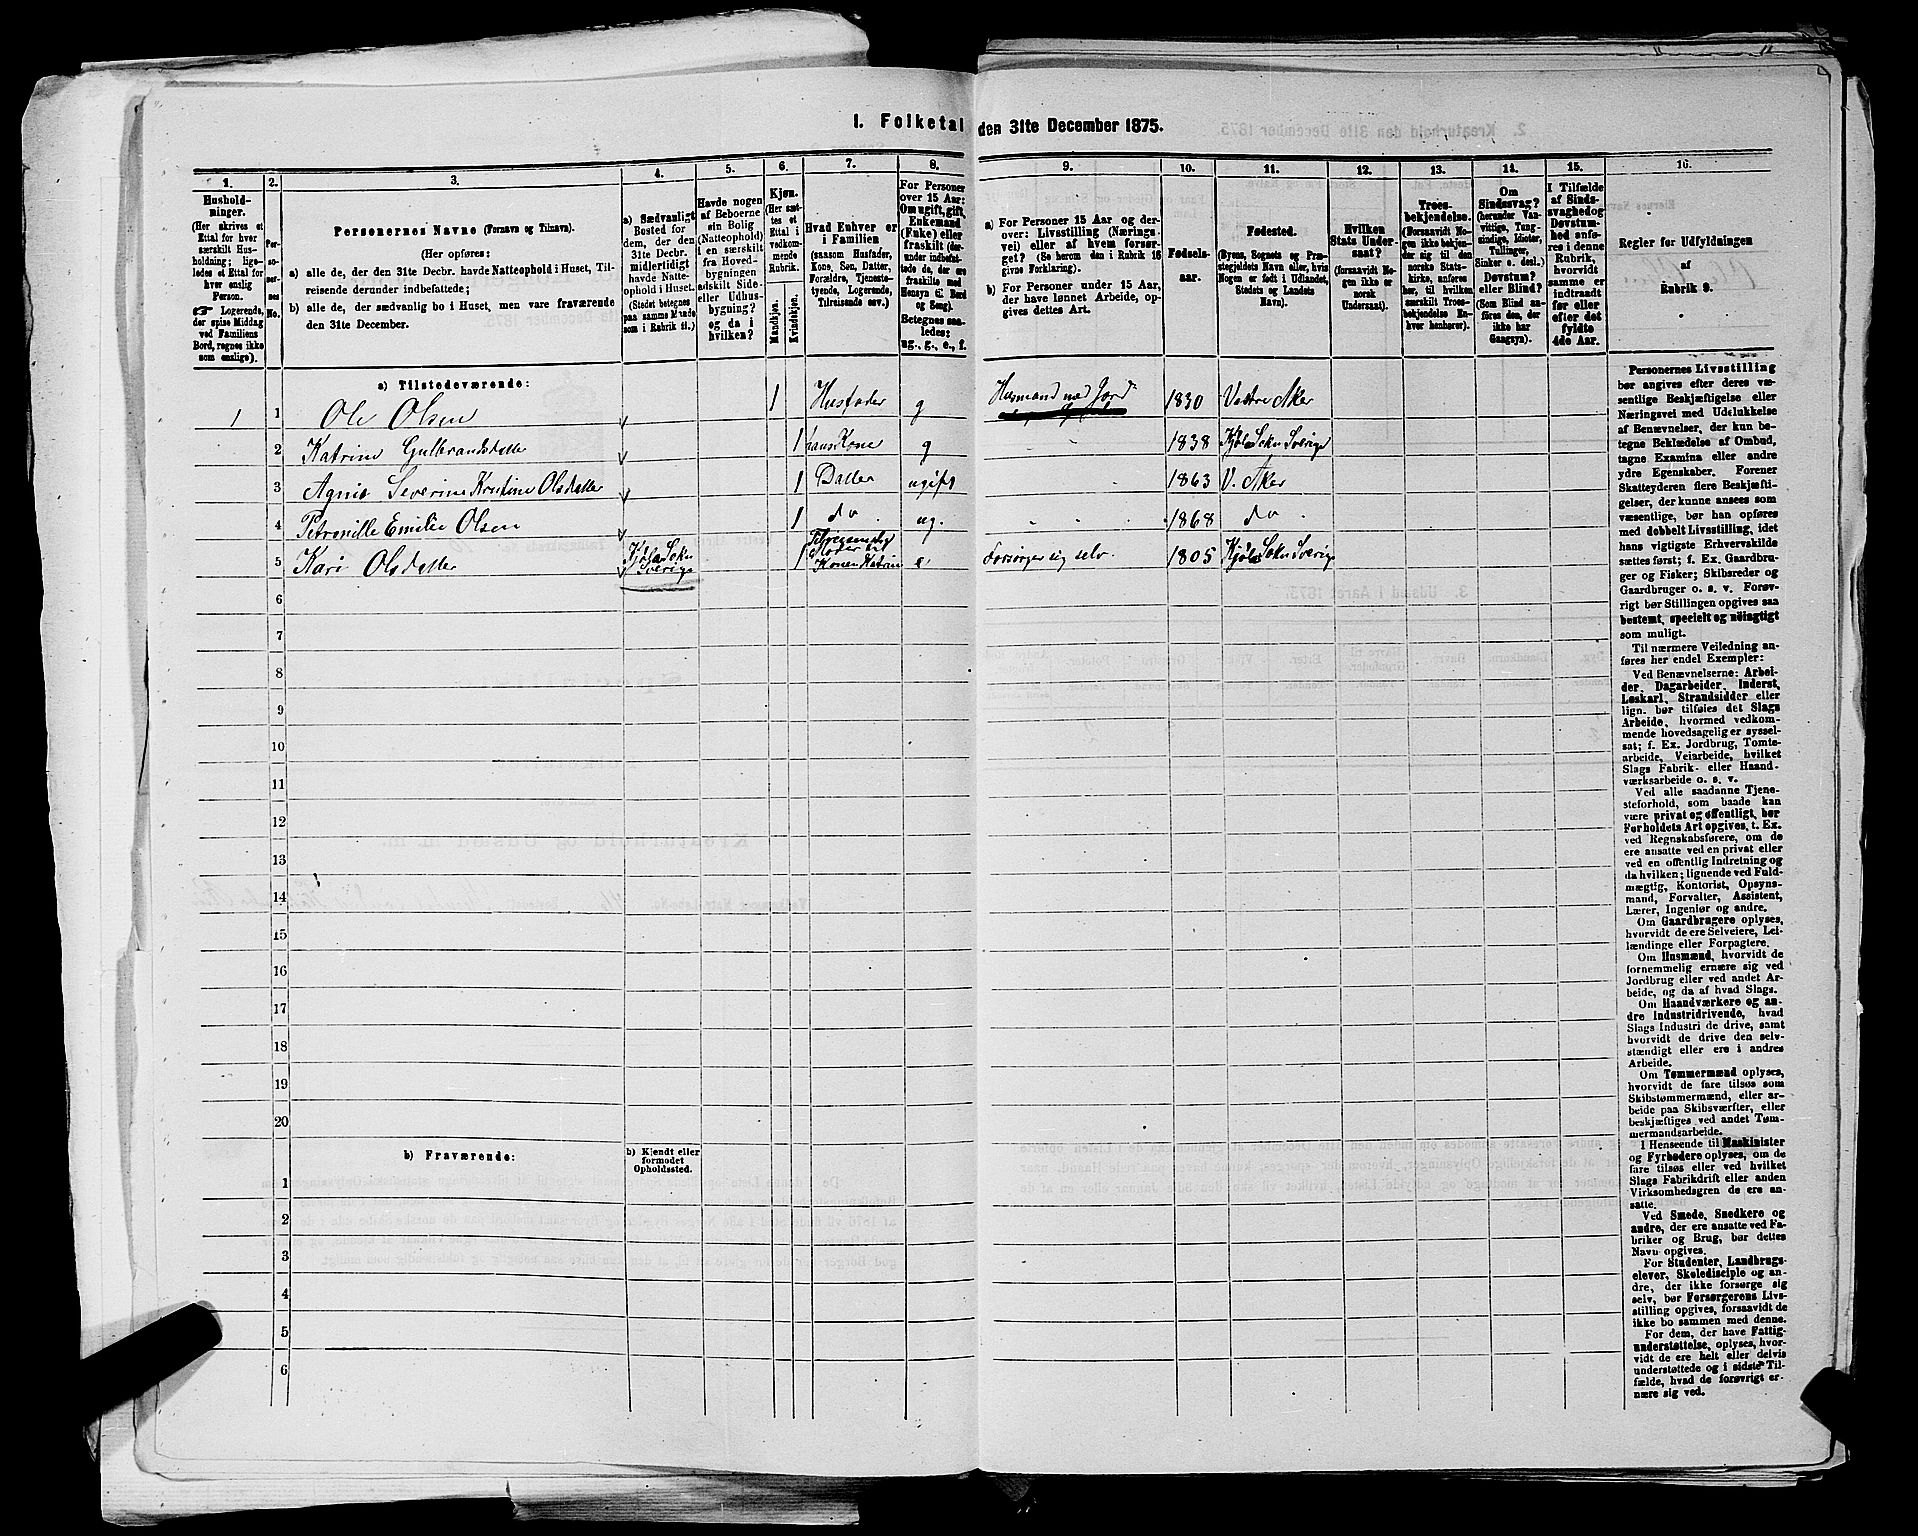 I. Folketal den 31te December 1875.
1.
Hushold-
ninger.
(Her skrives et
Ettal for hver
særskilt Hus-
holdning; lige-
ledes et Ettal for
hver enslig
Person.
☞ Logerende,
der spise Middag
ved Familiens
Bord, regnes ikke
som enslige).
2.
Per-
so-
ner-
nes
No.
3.
Personernes Navne (Fornavn og Tilnavn).
(Her opføres:
a) alle de, der den 31te Decbr. havde Natteophold i Huset, Til-
reisende derunder indbefattede;
b) alle de, der sædvanlig bo i Huset, men vare fraværende
den 31te December.
4.
a) Sædvanligt
Bosted for
dem, der den
31te Decbr.
midlertidigt
havde Natte-
ophold i Huset.
(Stedet betegnes
paa samme Maade
som i Rubrik 11.)
5.
Havde nogen
af Beboerne
sin Bolig
(Natteophold)
i en særskilt
fra Hoved-
bygningen
adskilt Side-
eller Udhus-
bygning?
og da i
hvilken?
6.
Kjøn.
(Her sæt-
tes et
Ettal i
vedkom-
mende
Rubrik.
Mandkjøn.
Kvindekjøn.
7.
Hvad Enhver er
i Familien
(saasom Husfader,
Kone, Søn, Datter,
Forældre, Tjeneste-
tyende, Logerende,
Tilreisende osv.)
8.
For Personer
over 15 Aar:
Om ugift, gift,
Enkemand
(Enke) eller
fraskilt (der-
under indbefat-
tede de, der ere
fraskilte med
Hensyn til Bord
og Seng).
Betegnes saa-
ledes:
ug., g., e., f.
9.
a) For Personer 15 Aar og der-
over: Livsstilling (Nærings-
vei) eller af hvem forsør-
get? (Se herom den i Rubrik 16
givne Forklaring).
b) For Personer under 15 Aar,
der have lønnet Arbeide, op-
gives dettes Art.
10.
Fødsels-
aar.
11.
Fødested.
(Byens, Sognets og Præ-
stegjeldets Navn eller, hvis
Nogen er født i Udlandet,
Stedets og Landets
Navn).
12.
Hvilken
Stats Under-
saat?
(forsaavidt No-
gen ikke er
norsk
Undersaat).
13.
Troes-
bekjendelse.
(Forsaavidt No-
gen ikke bekjen-
der sig til den
norske Stats-
kirke, anføres
her, til hvilken
særskilt Troes-
bekjendelse En-
hver henhører).
14.
Om
Sindssvag?
(herunder Van-
vittige, Tung-
sindige, Idioter,
Tullinger,
Sinker o. desl.)
Døvstum?
eller Blind?
(Som Blind an-
føres den, der
ikke har
Gangsyn).
15.
I Tilfælde
af Sinds-
svaghed og
Døvstum-
hed anfø-
res i denne
Rubrik,
hvorvidt
samme er
indtraadt
før eller
efter det
fyldte
4de Aar.
16.
Regler for Udfyldningen
af
Rubrik 9.
a) Tilstedeværende:
1 1 Ole Olsen 1 Husfader g Husmand med Jord 1830 Vestre Aker
2 Katrine Gulbrandsdatter 1 hans Kone g 1838 Kjøla Sokn Sverige
3 Agnis Severine Kristine Olsdatter 1 Datter ugift 1863 V. Aker
4 Petronille Emilie Olsen 1 do ug. 1868 do
5 Kari Olsdatter Kjøla Sokn Sverige 1 Moder til Konen Katrine e Forsørger sig selv. 1805 Kjøla Sokn Sverige
6
7
8
9
10
11
12
13
14
15
16
17
18
19
20
b) Fraværende:
b) Kjendt eller
formodet
Opholdssted.
1
2
3
4
5
6
Personernes Livsstilling
bør angives efter deres væ-
sentlige Beskjæftigelse eller
Næringsvei med Udelukkelse
af Benævnelser, der kun be-
tegne Beklædelse af Ombud,
tagne Examina eller andre
ydre Egenskaber. Forener
Skatteyderen flere Beskjæfti-
gelser, der kunne ansees som
væsentlige, bør han opføres
med dobbelt Livsstilling, idet
hans vigtigste Erhvervskilde
sættes først; f. Ex. Gaardbru-
ger og Fisker; Skibsreder og
Gaardbruger o. s. v. Forøv-
rigt bør Stillingen opgives saa
bestemt, specielt og nøiagtigt
som muligt.
Til nærmere Veiledning an-
føres her endel Exempler:
Ved Benævnelserne: Arbei-
der, Dagarbeider, Inderst,
Løskarl, Strandsidder eller
lign. bør tilføies det Slags
Arbeide, hvormed vedkom-
mende hovedsagelig er syssel-
sat; f. Ex. Jordbrug, Tomte-
arbeide, Veiarbeide, hvilket
Slags Fabrik- eller Haand-
værksarbeide o. s. v.
Ved alle saadanne Tjene-
steforhold, som baade kan
være privat og offentligt, bør
Forholdets Art opgives, t. Ex.
ved Regnskabsførere, om de
ere ansatte ved en privat eller
ved en offentlig Indretning og
da hvilken; lignende ved Fuld-
mægtig, Kontorist, Opsyns-
mand, Forvalter, Assistent,
Lærer, Ingeniør og andre.
Om Gaardbrugere oplyses,
hvorvidt de ere Selveiere, Lei-
lændinge eller Forpagtere.
Om Husmænd, hvorvidt de
fornemmelig ernære sig ved
Jordbrug eller ved andet Ar-
beide, og da af hvad Slags.
Om Haandværkere og an-
dre Industridrivende, hvad
Slags Industri de drive, samt
hvorvidt de drive den selv-
stændigt eller ere i andres
Arbeide.
Om Tømmermænd oplyses,
hvorvidt de fare tilsøs som
Skibstømmermænd, eller ar-
beide paa Skibsværfter, eller
beskjæftiges ved andet Tøm-
mermandsarbeide.
I Henseende til Maskinister
og Fyrbødere oplyses, om de
fare tilsøs eller ved hvilket
Slags Fabrikdrift eller anden
Virksomhedsgren de ere an-
satte.
Ved Smede, Snedkere og
andre, der ere ansatte ved Fa-
briker og Brug, bør dettes
Navn opgives.
For Studenter, Landbrugs-
elever, Skoledisciple og an-
dre, der ikke forsørge sig
selv, bør Forsørgerens Livs-
stilling opgives, forsaavidt de
ikke bo sammen med denne.
For dem, der have Fattig-
understøttelse, oplyses, hvor-
vidt de ere helt eller delvis
understøttede og i sidste Til-
fælde, hvad de forøvrigt er-
nære sig ved.